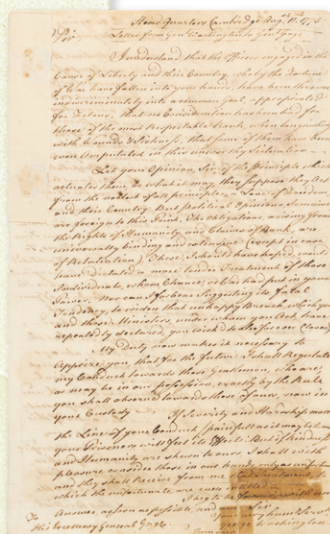 Head Quarters Cambridge Augt. 11. 1775
Sir, Letter from Genl Washington to Genl Gage
I understand that the Officers engaged in the
Cause of Liberty and their Country, who by the fortune
of War have fallen into your hands, have been thrown
into a common Gaol, appropriated
for Felons; that no Consideration has been had for
those of the most respectable Rank, when languishing
with Wounds & Sickness; that some of them have been
even Amputated in this
Let your Opinion, Sir, of the Principle which
actuates them, be what it may, they suppose they act
from the noblest of all principles, a Love of Freedom
and their Country. But political Opinions
are foreign to this Point. The obligations arising from
the Rights of Humanity and Claims of Rank, are
universally binding and extensive (except in case
of Retaliation.) These, I should have hoped, would
have dictated a more tender Treatment of those
Individuals, whom Chance or War had put in your
Power. Nor can I forbear suggesting its fatal
Tendency, to widen that unhappy Breach, which you
and those Ministers under whom you act, have
repeatedly declared, you wished to see forever closed
My Duty now makes it necessary to
apprize you, that for the future I shall Regulate
my Conduct towards those Gentlemen, who are,
or may be in our possession, exactly by the Rule
you shall observe towards those of ours, now in
your Custody. If Severity and Hardship mark
the Line of your Conduct painful as it may be to me
your Prisoners will feel its Effects: But if kindness
and Humanity are shewn to ours I shall with
pleasure consider those in our hands, only as unfortunate
and they shall receive from me
which the unfortunate are ever
I beg to be
Answer as soon as possible, and
To
George Washington